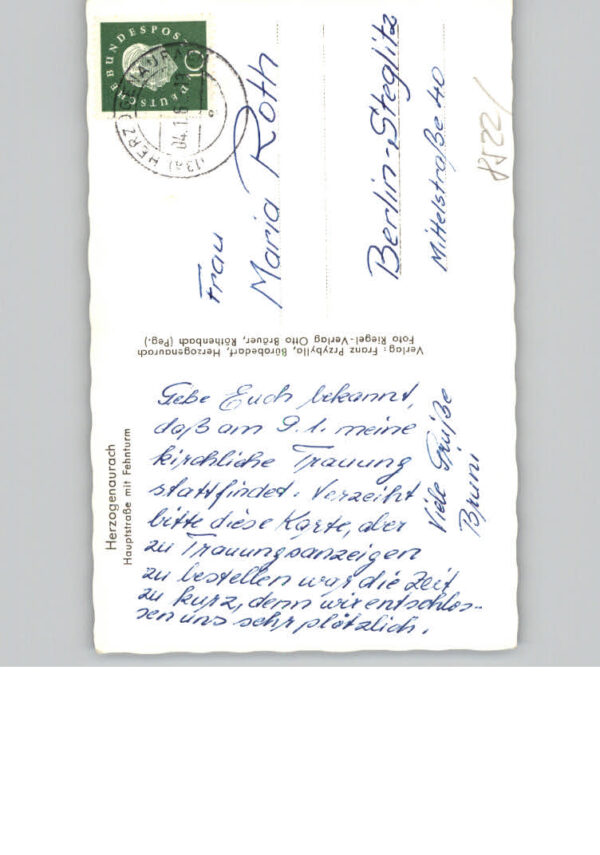 Herzogenaurach
Hauptstraße mit Fehnturm
Gebe Euch bekannt,
daß am 9. 1. meine
kirchliche Trauung
stattfindet. Verzeiht
bitte diese Karte, aber
zu Trauungsanzeigen
zu bestellen war die Zeit
zu kurz, denn wir entschlos-
sen uns sehr plötzlich.
Viele Grüße
Bruni
Verlag: Franz Przybylla, Bürobedarf, Herzogenaurach
Foto Riegel-Verlag Otto Bräuer, Röthenbach (Peg.)
DEUTSCHE BUNDESPOST
10
(13a) HERZOGENAURACH
04.1.6
Frau
Maria Roth
Berlin-Steglitz
Mittelstraße 40
8522/